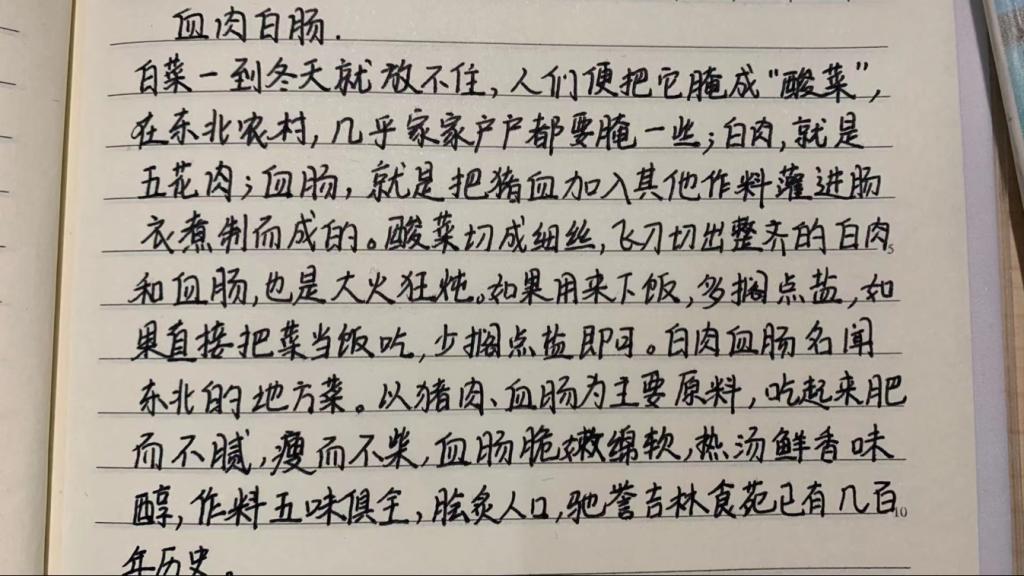 血肉白肠.
白菜一到冬天就放不住,人们便把它腌成"酸菜",
在东北农村,几乎家家户户都要腌一些;白肉,就是
五花肉;血肠,就是把猪血加入其他作料灌进肠
衣煮制而成的。酸菜切成细丝,飞刀切出整齐的白肉
5
和血肠,也是大火狂炖。如果用来下饭,多搁点盐,如
果直接把菜当饭吃,少搁点盐即可。白肉血肠名闻
东北的地方菜。以猪肉、血肠为主要原料,吃起来肥
而不腻,瘦而不柴,血肠脆嫩绵软,热汤鲜香味
醇,作料五味俱全,脍炙人口,驰誉吉林食苑已有几百
10
年历史。